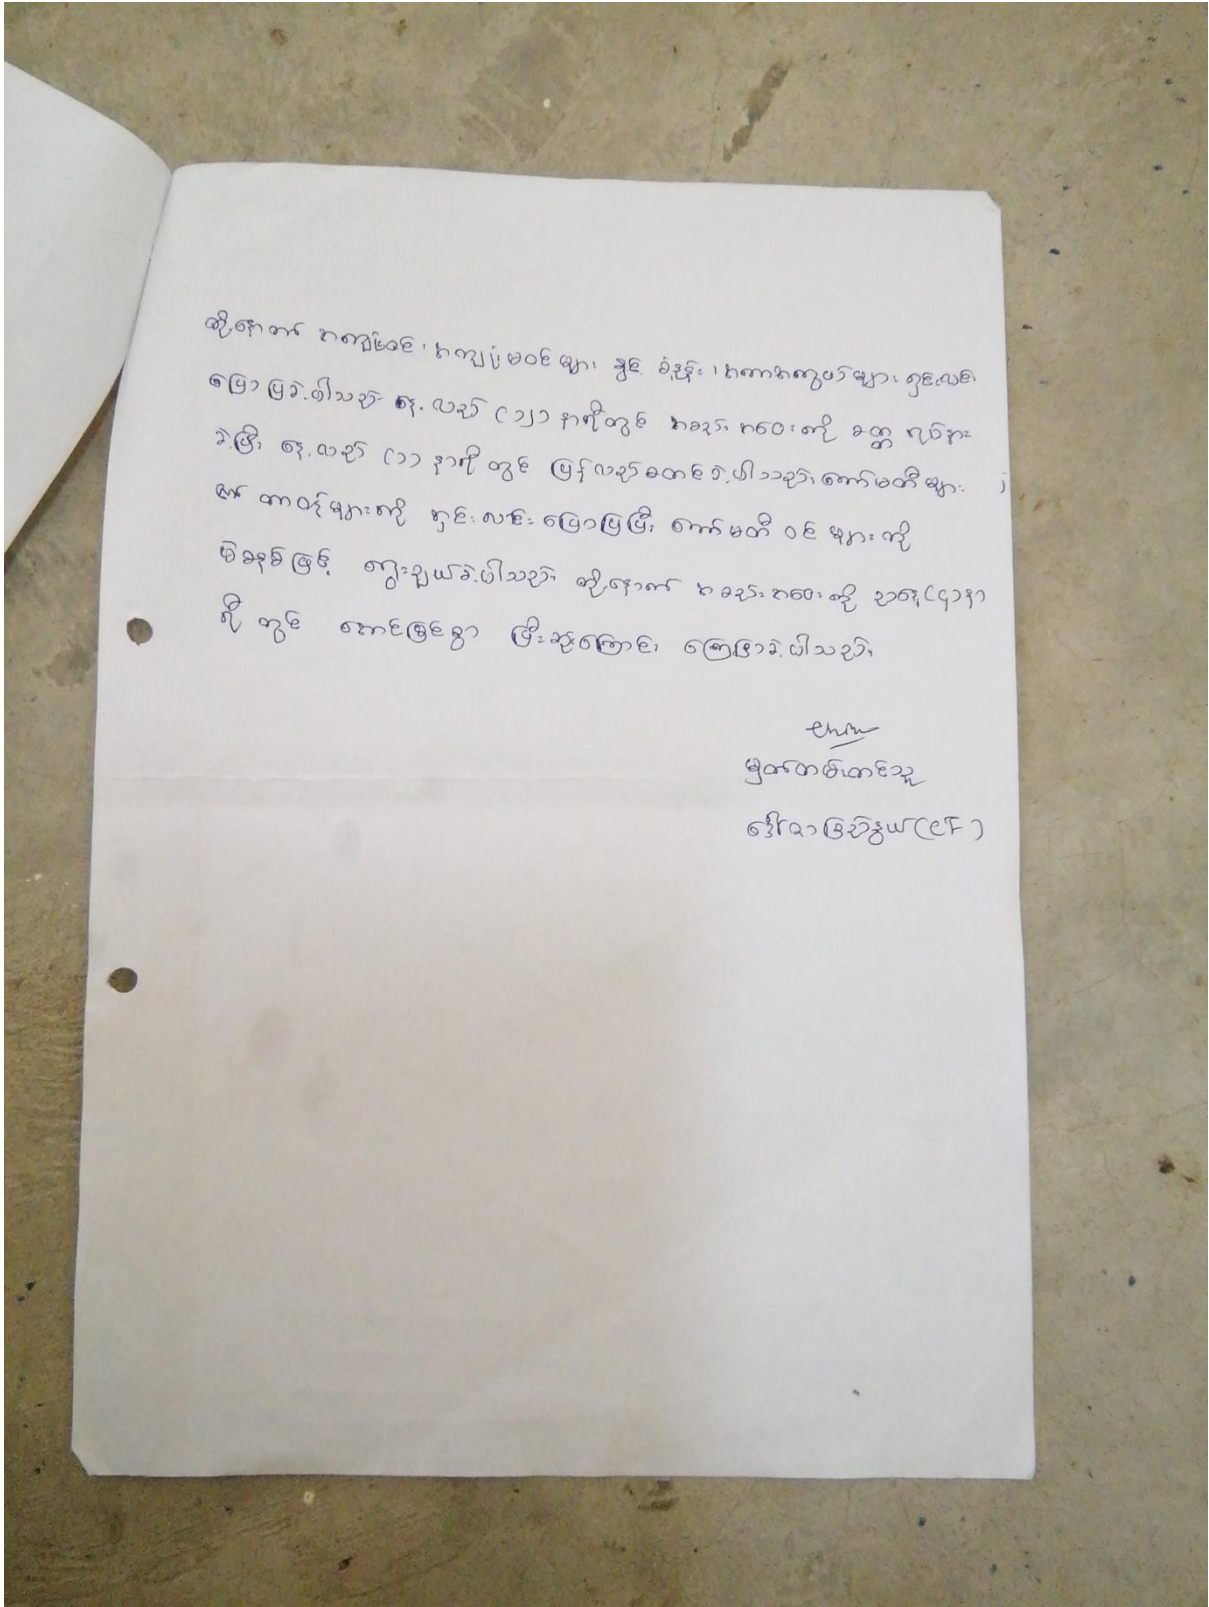 ထို့နောက် အကျုံးဝင်၊ အကျုံးမဝင်များ နှင့် စံနှုန်း၊ အကာအကွယ်များ ရှင်းလင်း
ပြောပြခဲ့ပါသည်။ နေ့လည် (၁၂) နာရီတွင် အစည်းအဝေးကို ခတ္တ ရပ်နား
ခဲ့ပြီး နေ့လည် (၁) နာရီ တွင် ပြန်လည်စတင်ခဲ့ပါသည်။ ကော်မတီများ
၏ တာဝန်များကို ရှင်းလင်းပြောပြပြီး ကော်မတီ ဝင် များကို
မဲစနစ်ဖြင့် ရွေးချယ်ခဲ့ပါသည်။ ထို့နောက် အစည်းအဝေးကို ညနေ(၄)နာ
ရီ တွင် အောင်မြင်စွာ ပြီးဆုံးကြောင်း ကြေညာခဲ့ပါသည်။
မှတ်တမ်းတင်သူ
ဒေါ် (CF)